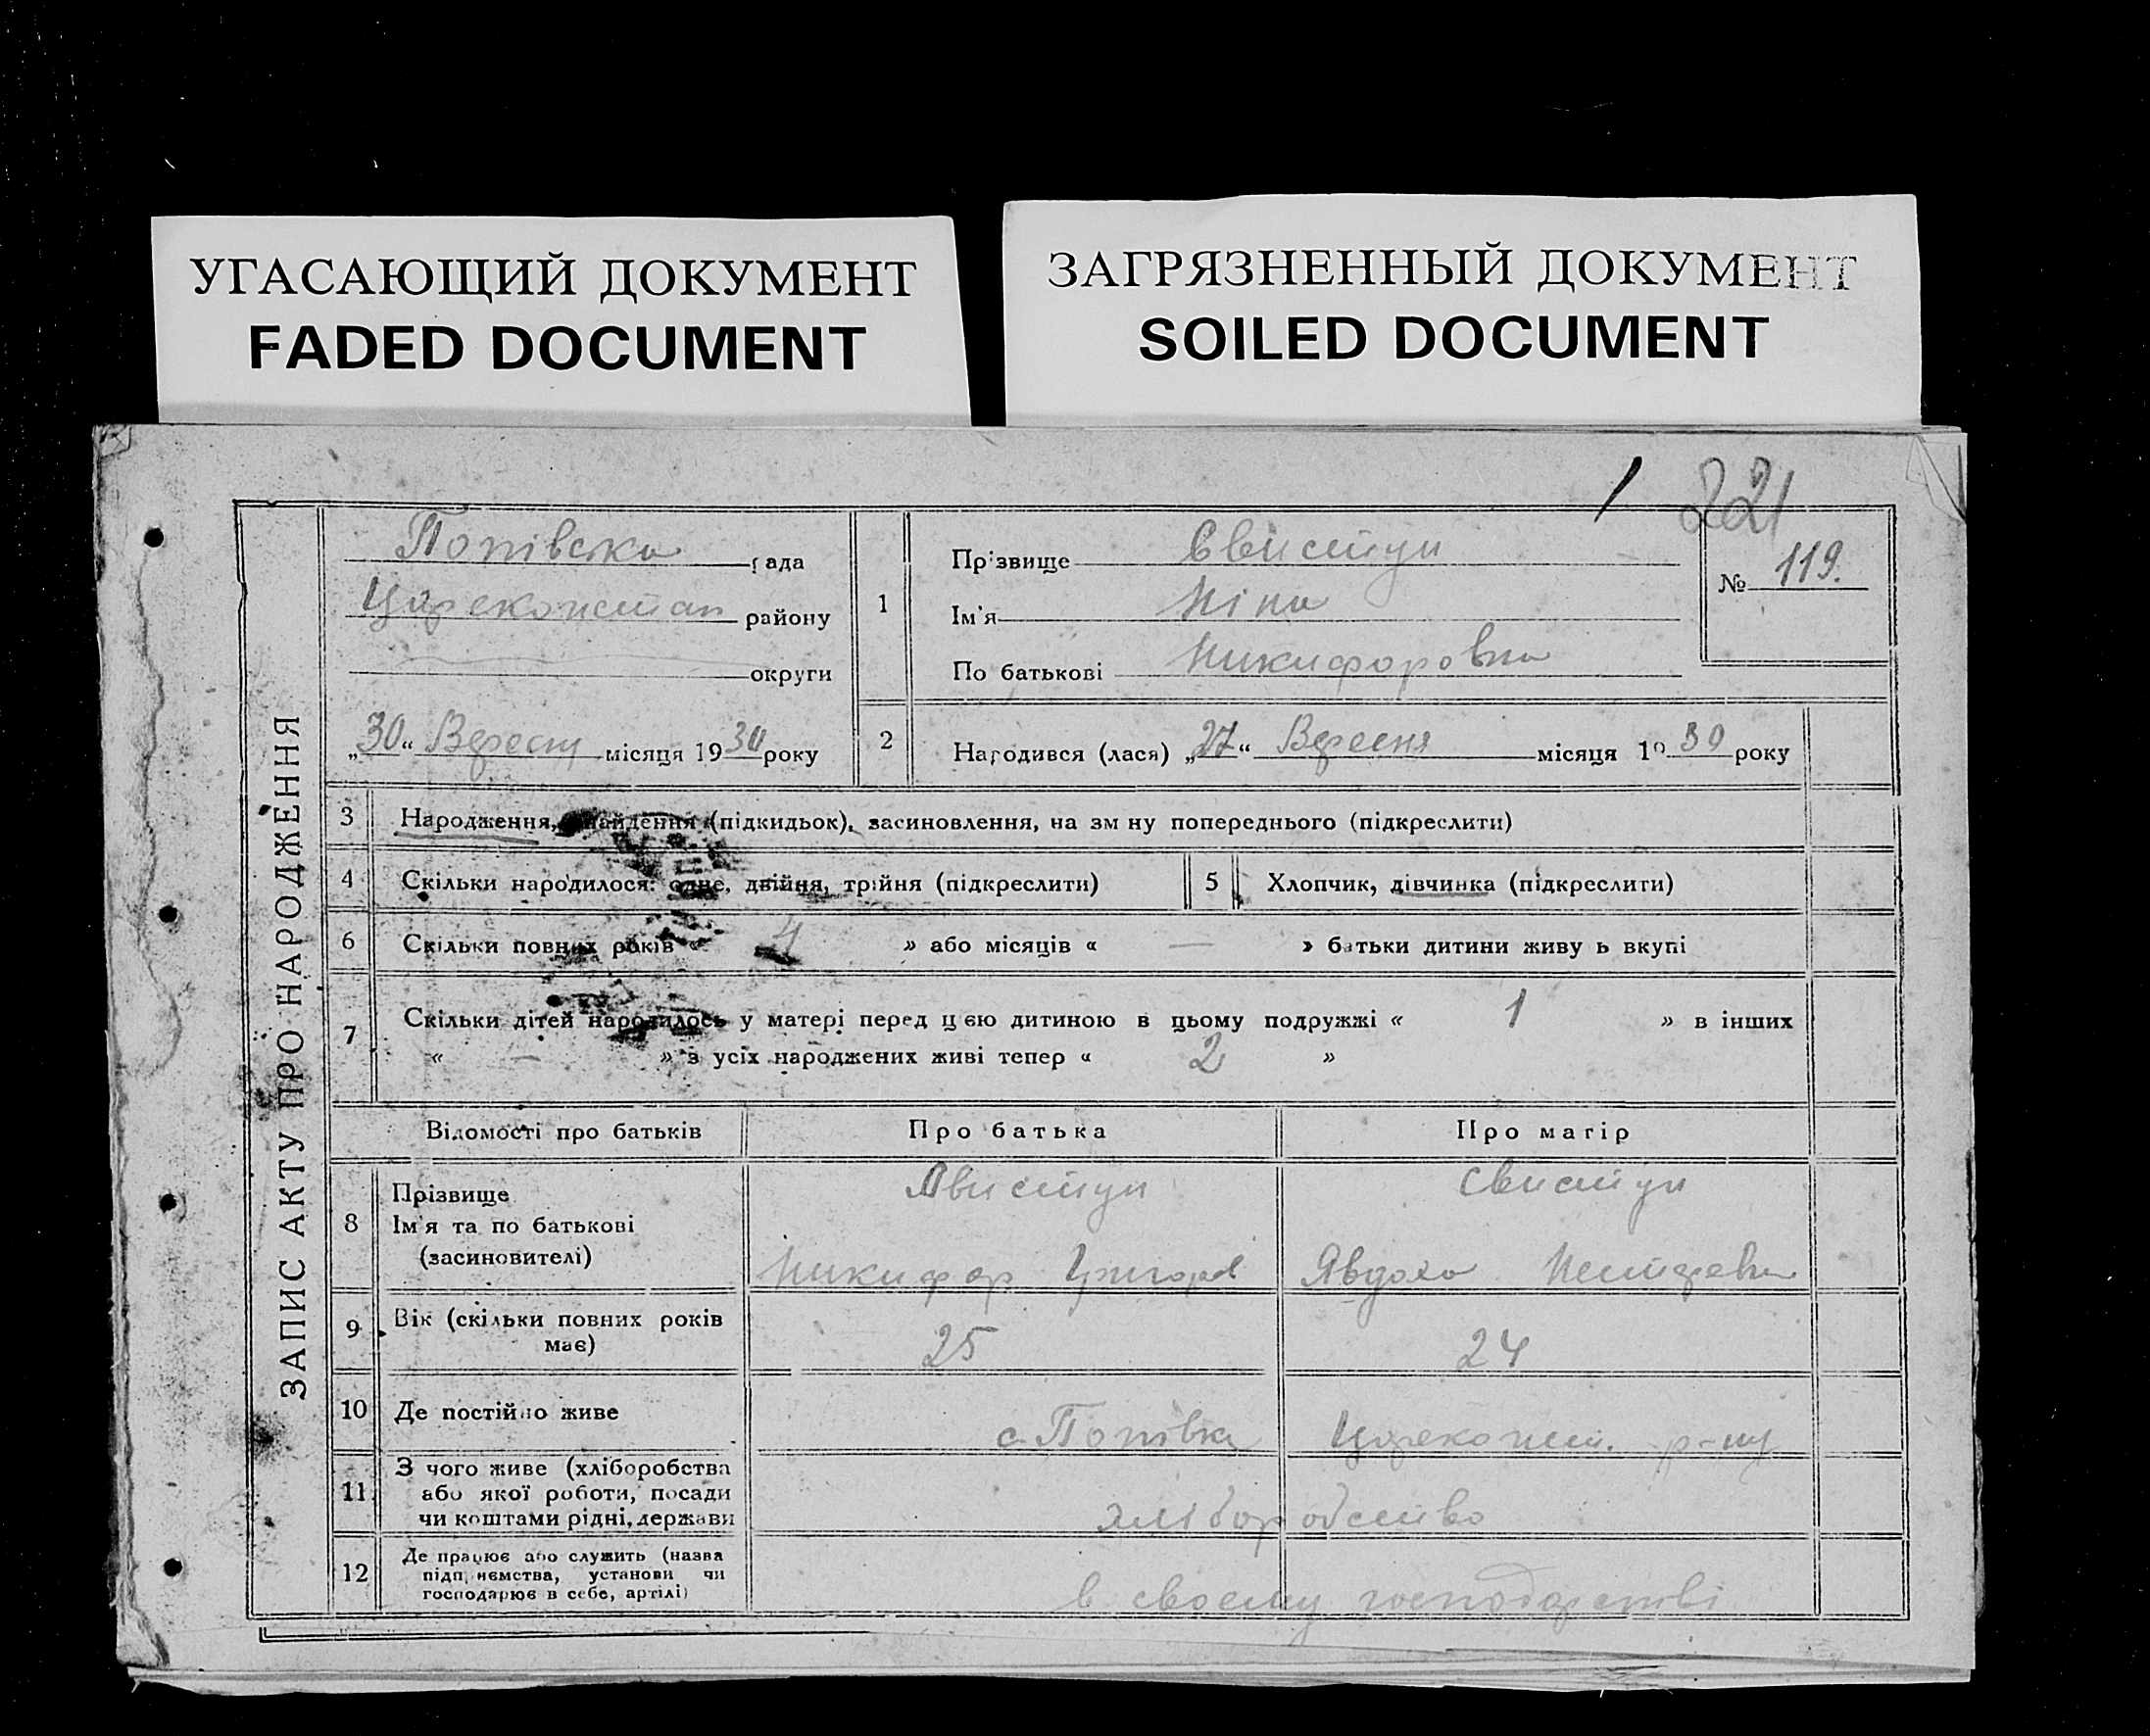 УГАСАЮЩИЙ ДОКУМЕНТ
FADED DOCUMENT
ЗАГРЯЗНЕННЫЙ ДОКУМЕНТ
SOILED DOCUMENT
1 221
ЗАПИС АКТУ ПРО НАРОДЖЕННЯ
Попівска рада
Цареконстан району
округи
„30“ Вересня місяця 1930 року
1
Прізвище Свистун
Ім'я Ніна
По батькові Никифоровна
№ 119.
2 Народився (лася) „27“ Вересня місяця 1930 року
3 Народження, знайдення (підкидьок), засиновлення, на зміну попереднього (підкреслити)
4 Скільки народилося: одне, двійня, трійня (підкреслити)
5 Хлопчик, дівчинка (підкреслити)
6 Скільки повних років « 4 » або місяців « — » батьки дитини живуть вкупі
7 Скільки дітей народилось у матері перед цією дитиною в цьому подружжі « 1 » в інших
« — » з усіх народжених живі тепер « 2 »
Відомості про батьків Про батька Про матір
8 Прізвище
Ім'я та по батькові
(засиновителі)
Свистун
Никифор Григоров
Свистун
Явдоха Нестеревна
9 Вік (скільки повних років
має)
25 24
10 Де постійно живе с. Попівка Цареконст. р-ну
11 З чого живе (хліборобства
або якої роботи, посади
чи коштами рідні, держави
хліборобство
12 Де працює або служить (назва
підприємства, установи чи
господарює в себе, артілі)
в своєму господарстві